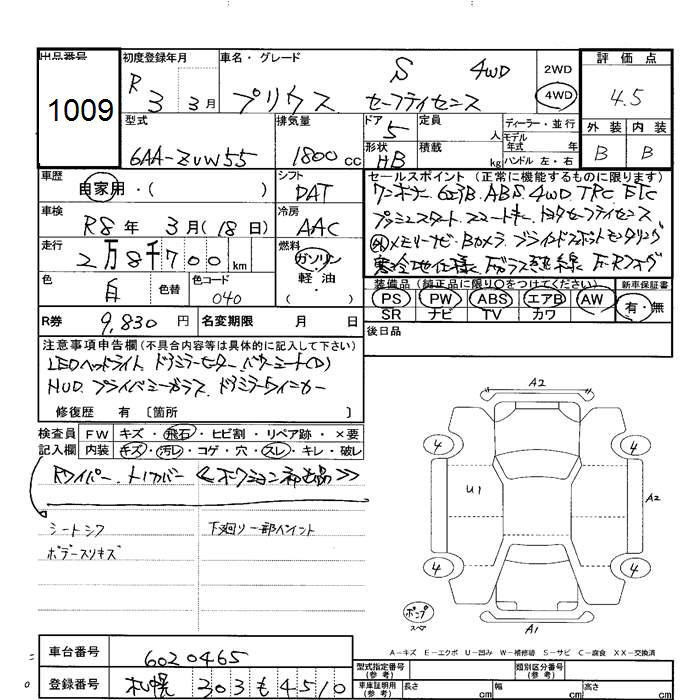 出品番号
1009
初度登録年月
R3 3月
車名・グレード
S 4WD
プリウス セーフティセンス
2WD
4WD
評価点
4.5
外装 内装
B B
型式
6AA-ZVW55
排気量
1800cc
ドア
5
形状
HB
定員
人
積載
kg
ディーラー・並行
モデル年式 年
ハンドル 左・右
車歴
自家用・( )
シフト
DAT
車検
R8年 3月(18日)
冷房
AAC
走行
2万8千700km
燃料
ガソリン
軽・油
( )
色
白
色替
色コード
040
R券 9,830円
名変期限 月 日
セールスポイント(正常に機能するものに限ります)
ワンオーナー 6エアB ABS 4WD TRC ETC
プッシュスタート スマートキー トヨタセーフティセンス
外メモリーナビ・Bカメラ ブラインドスポットモニタリング
寒冷地仕様 Fガラス熱線 F・Rフォグ
装備品(純正品に限り○をつけてください)
PS PW ABS エアB AW
SR ナビ TV カワ
新車保証書
有・無
後日品
注意事項申告欄(不具合内容等は具体的に記入して下さい)
LEDヘッドライト ドアミラーヒーター パワーシート(D)
HUD プライバシーガラス ドアミラーウィンカー
修復歴 有 〔箇所 〕
検査員記入欄
FW キズ・飛石・ヒビ割・リペア跡・×要
内装 キズ・汚レ・コゲ・穴・スレ・キレ・破レ
Rワイパー トノカバー
シートシワ
ボデースリキズ
下廻り一部ペイント
A2
4 4
U1
A2
4 4
ポンプ
スペア
A1
A-キズ E-エクボ U-凹み W-補修跡 S-サビ C-腐食 XX-交換済
車台番号
6020465
登録番号
札幌 303 も 4510
型式指定番号(参考)
類別区分番号(参考)
車庫証明用(参考)
長さ cm
幅 cm
高さ cm